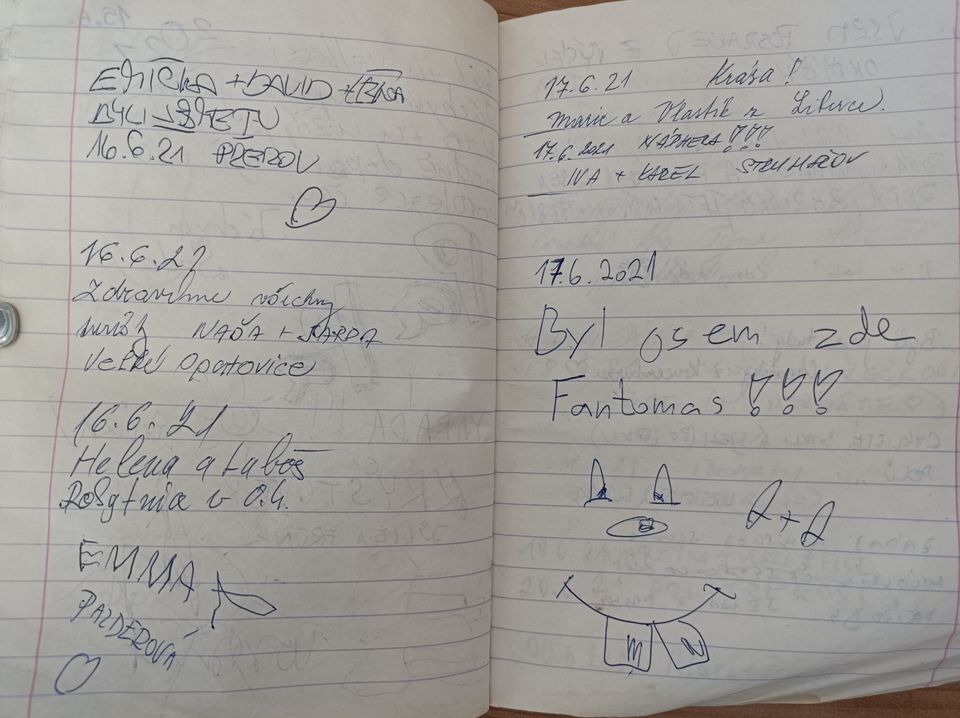 EMIČKA + DAVID + LENKA
BYLI V SVĚTU
16.6.21 PŘEROV
16.6.21
Zdravíme všechny
NAĎA + JARDA
Velké Opatovice
16.6.21
Helena a Luboš
Rosytnia v O.h.
EMMA
PALDEROVÁ
17.6.21 Krása!
Marie a Vlastík z Liberce.
17.6.2021 NÁDHERA!!!
IVA + KAREL STRUHAŘOV
17.6.2021
Byl osem zde
Fantomas !!!
m